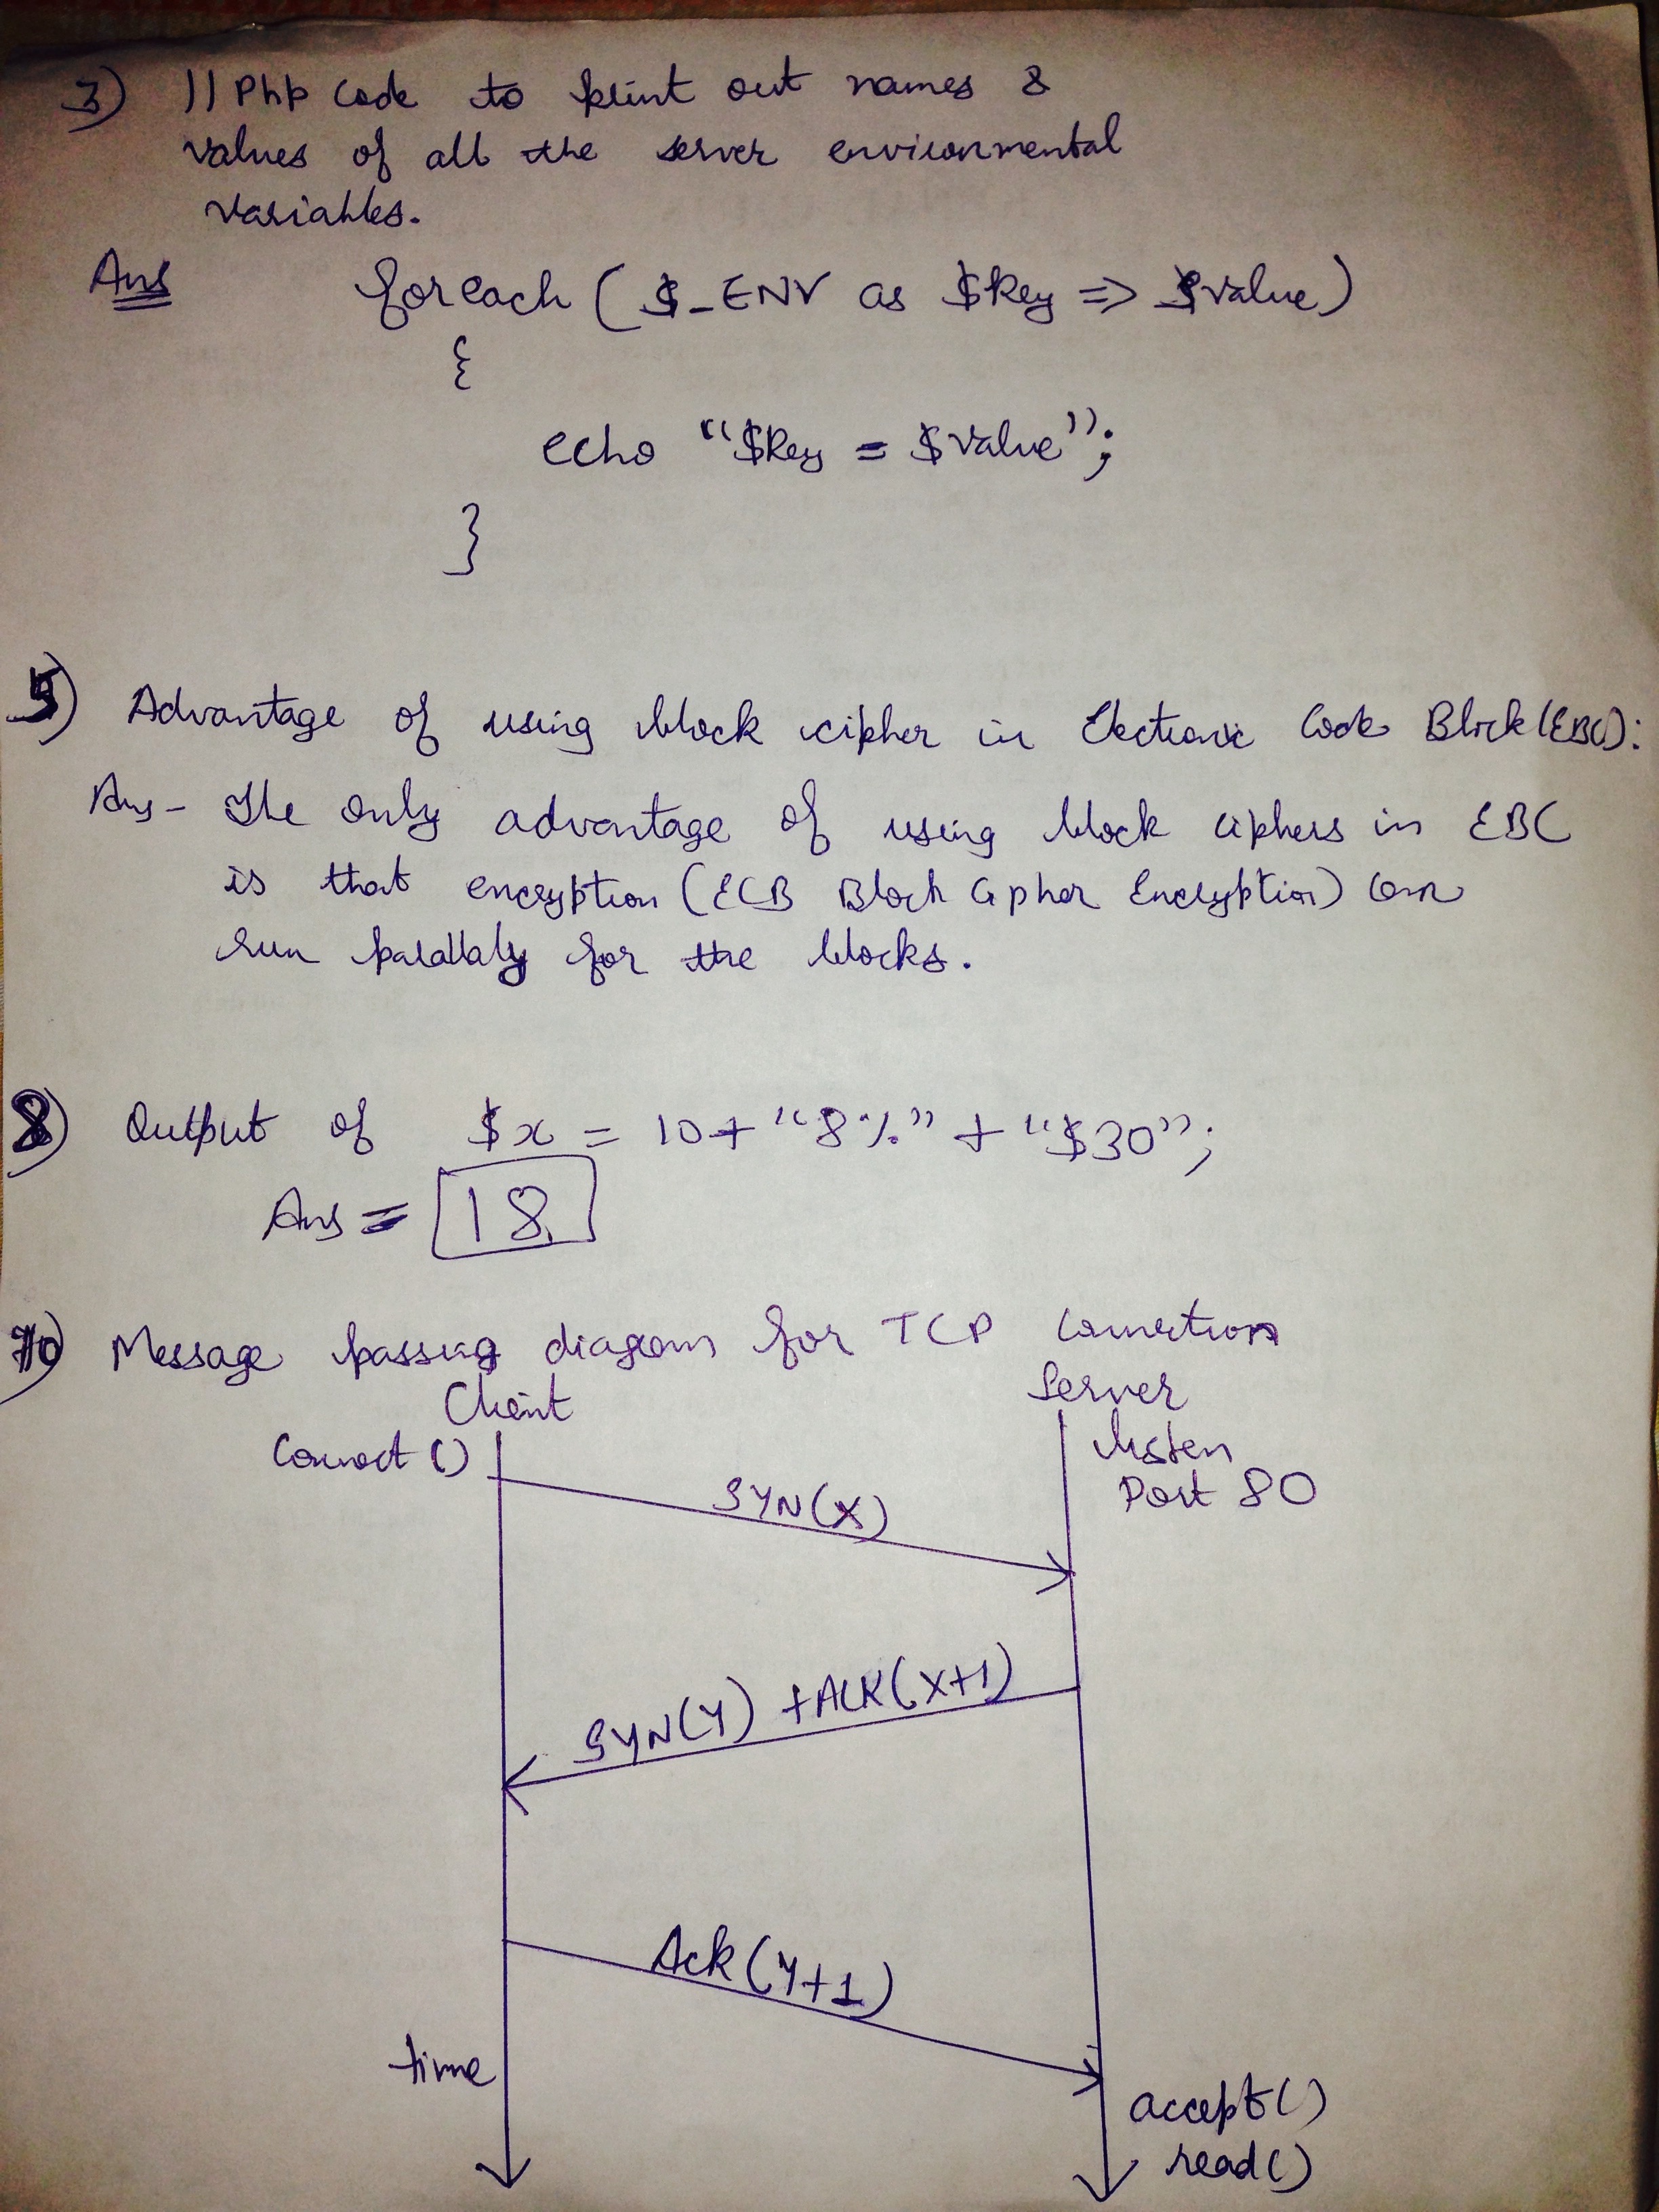 3) // Php Code to print out names &
values of all the server environmental
variables.
Ans foreach ($_ENV as $key => $value)
{
echo "$key = $value";
}
5) Advantage of using block cipher in Electronic Code Block (EBC):
Ans - The only advantage of using block ciphers in EBC
is that encryption (ECB Block Cipher Encryption) can
run parallaly for the blocks.
8) Output of $x = 10 + "8%" + "$30";
Ans = 18
10) Message passing diagram for TCP Connection
Client Server
Connect () listen
Port 80
SYN(X)
SYN(Y) + ACK(X+1)
Ack (Y+1)
time
accept()
read()